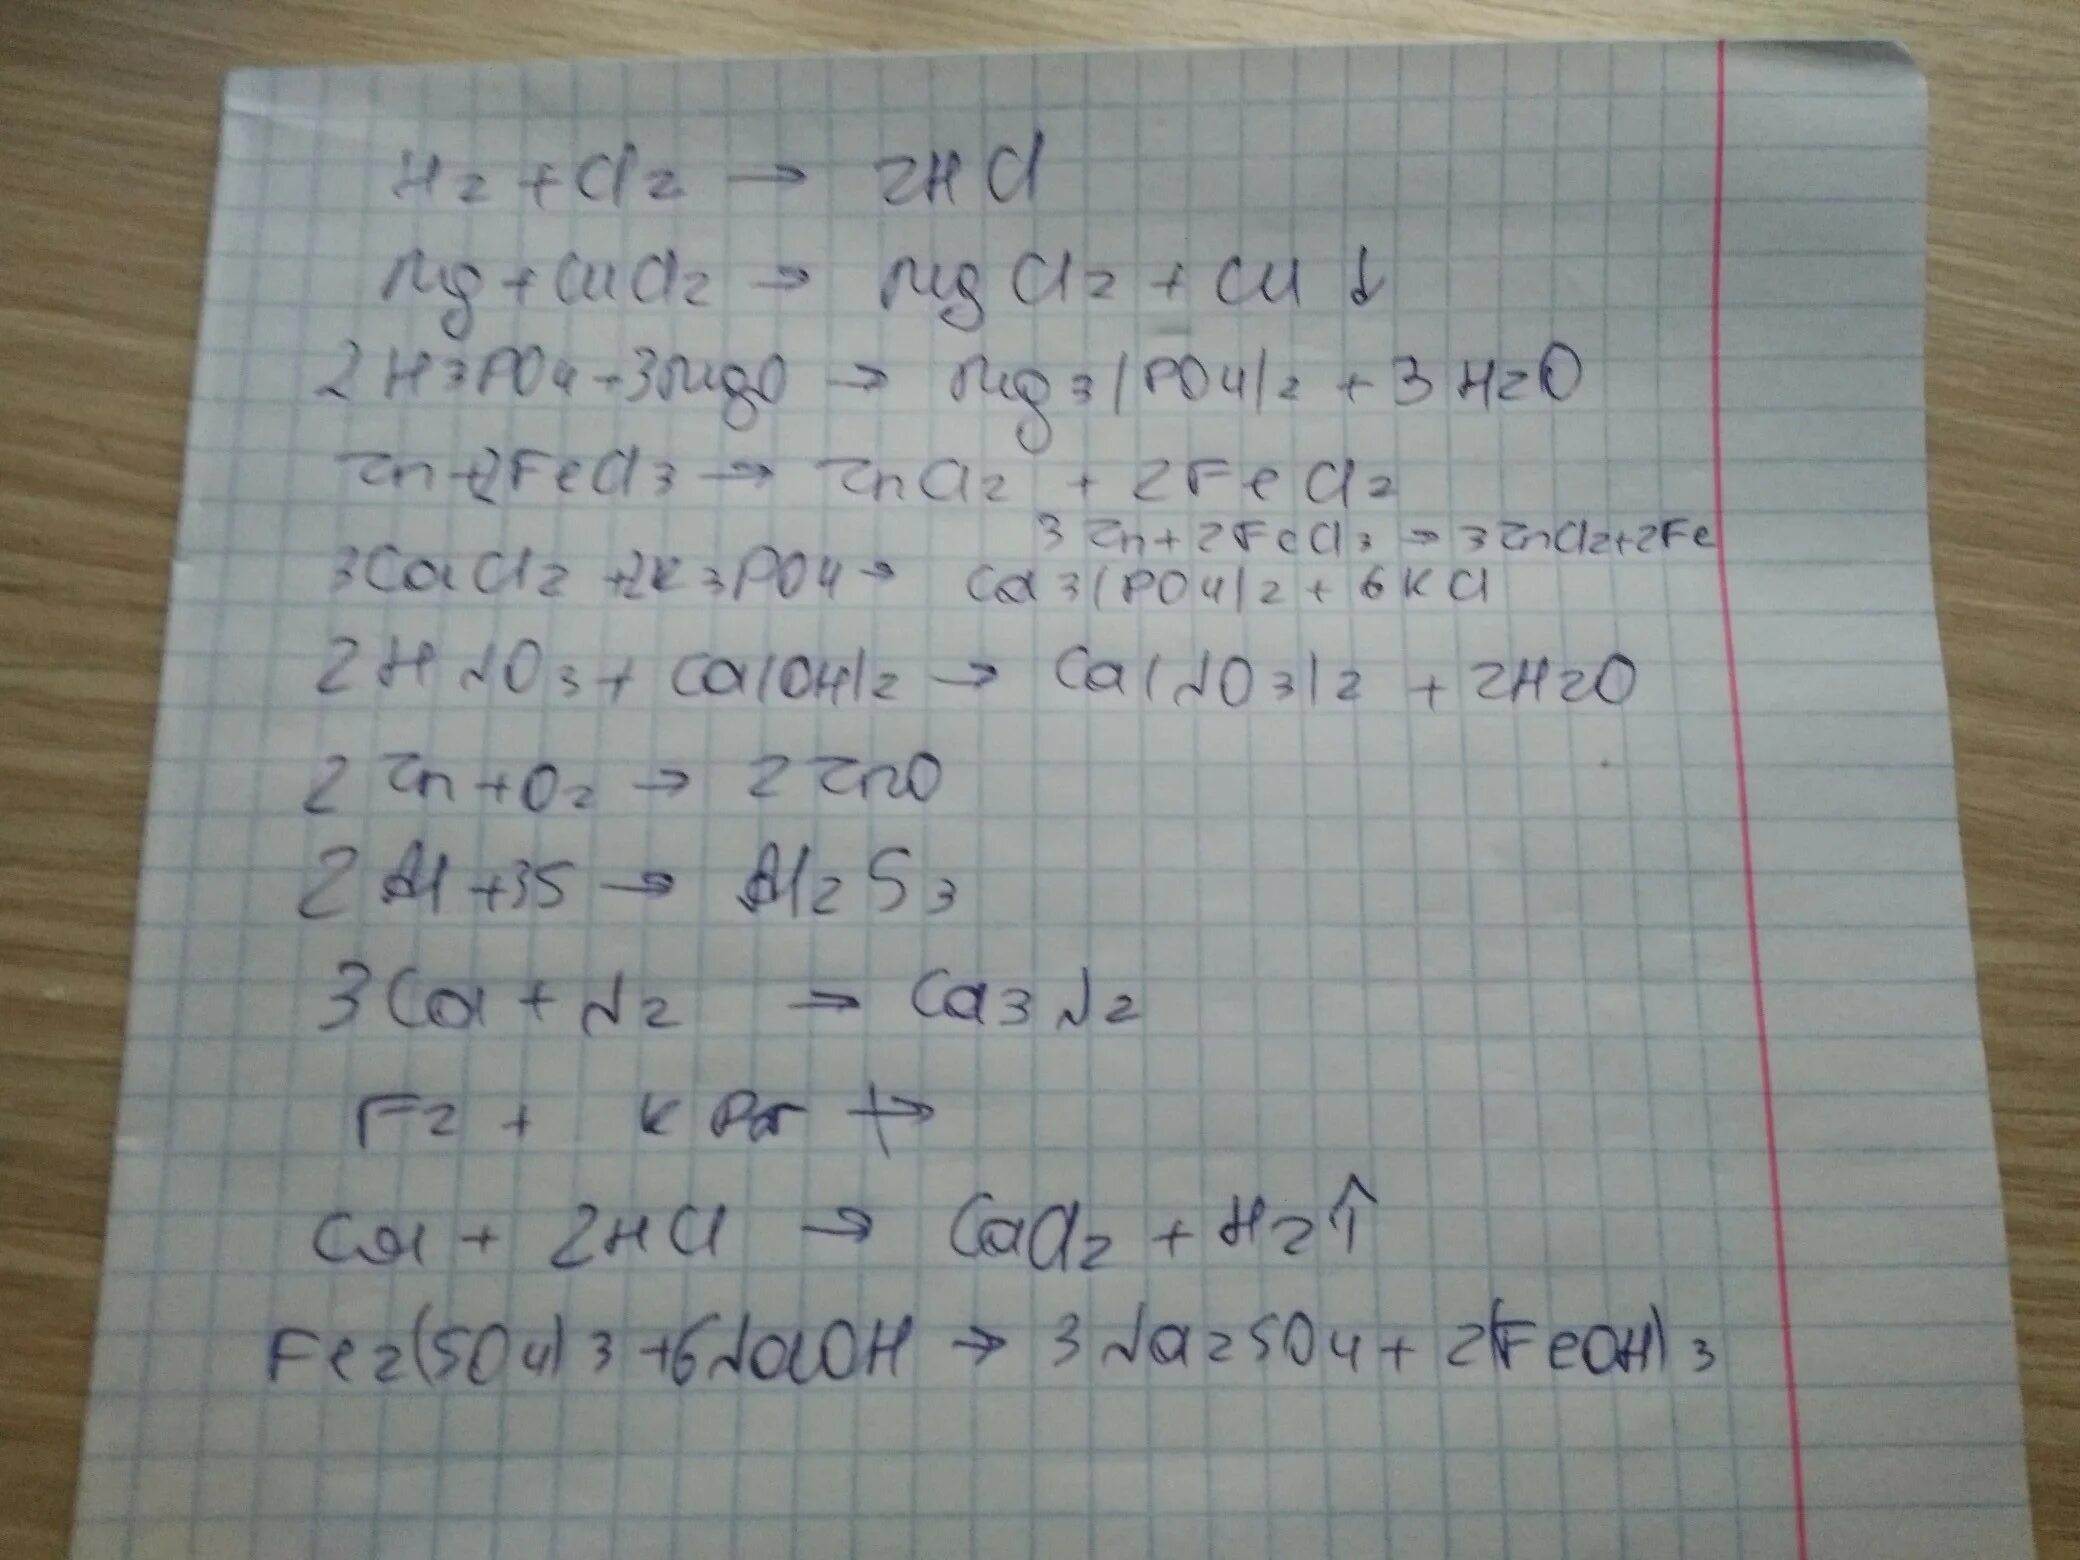 H2 + Cl2 → 2HCl
Mg + CuCl2 → MgCl2 + Cu ↓
2H3PO4 + 3MgO → Mg3(PO4)2 + 3H2O
Zn + 2FeCl3 → ZnCl2 + 2FeCl2
3Zn + 2FeCl3 → 3ZnCl2 + 2Fe
3CaCl2 + 2K3PO4 → Ca3(PO4)2 + 6KCl
2HNO3 + Ca(OH)2 → Ca(NO3)2 + 2H2O
2Zn + O2 → 2ZnO
2Al + 3S → Al2S3
3Ca + N2 → Ca3N2
F2 + K
Ca + 2HCl → CaCl2 + H2↑
Fe2(SO4)3 + 6NaOH → 3Na2SO4 + 2(FeOH)3